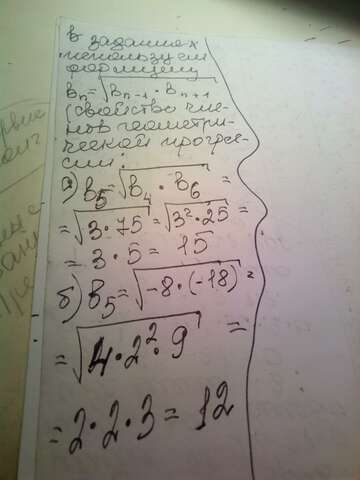 В заданиях
используем
формулу
bₙ=√bₙ₋₁·bₙ₊₁
(свойство чле-
нов геометри-
ческой прогре-
сии:
а) b₅=√b₄·b₆ =
=√3·75=√3²·25 =
= 3·5= 15
б) b₅=√-8·(-18) =
=√4·2²·9 =
=2·2·3= 12